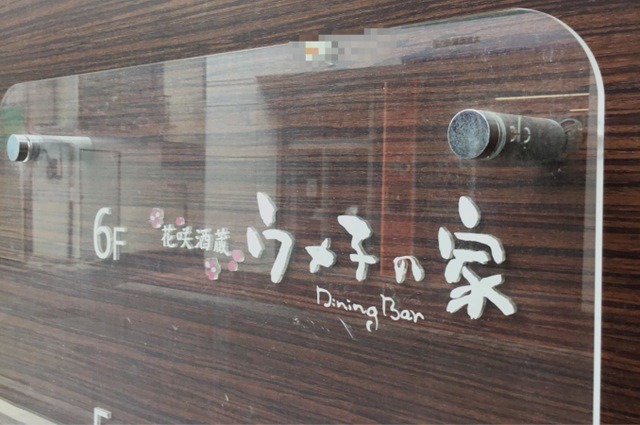 6F 花咲酒蔵 ウメ子の家
Dining Bar